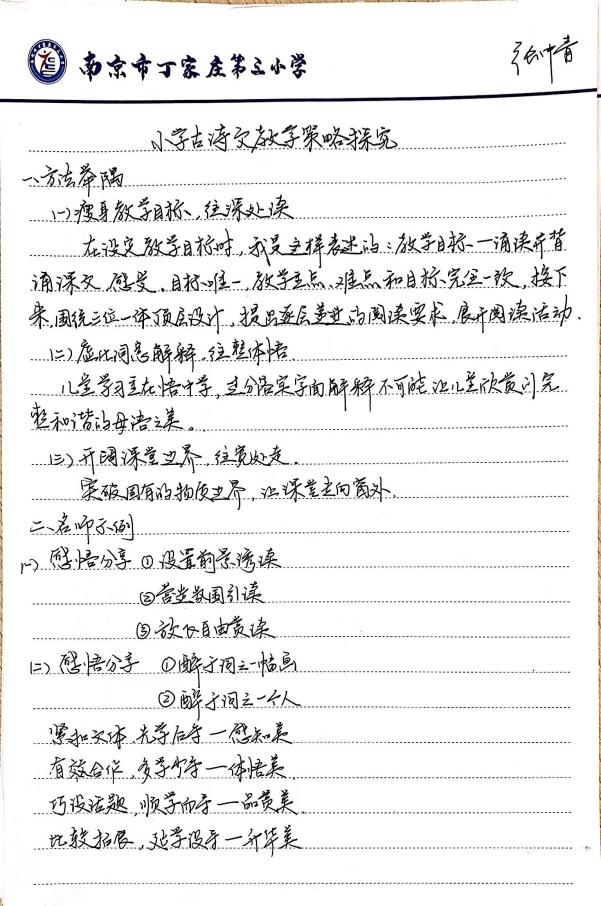 南京市丁家庄第三小学
张中青
小学古诗文教学策略探究
一、方法举隅
(一)瘦身教学目标、往深处读
在设定教学目标时，我是这样表述的：教学目标—诵读并背
诵课文，感受。目标唯一，教学重点、难点和目标完全一致，接下
来，围绕三位一体顶层设计，提出逐层递进的阅读要求，展开阅读活动.
(二)虚化词句解释，往整体悟
儿童学习重在悟中学，过分落实字面解释不可能让儿童欣赏到完
整和谐的母语之美。
(三)开阔课堂边界，往宽处走.
突破固有的物质边界，让课堂走向窗外.
二、名师示例
(一)感悟分享 ①设置前景诱读
②营造氛围引读
③放飞自由赏读
(二)感悟分享 ①醉于词之一幅画
②醉于词之一个人
紧扣文体，先学后导—感知美
有效合作，多学少导—体悟美
巧设话题，顺学而导—品赏美.
比较拓展，延学设导—升华美